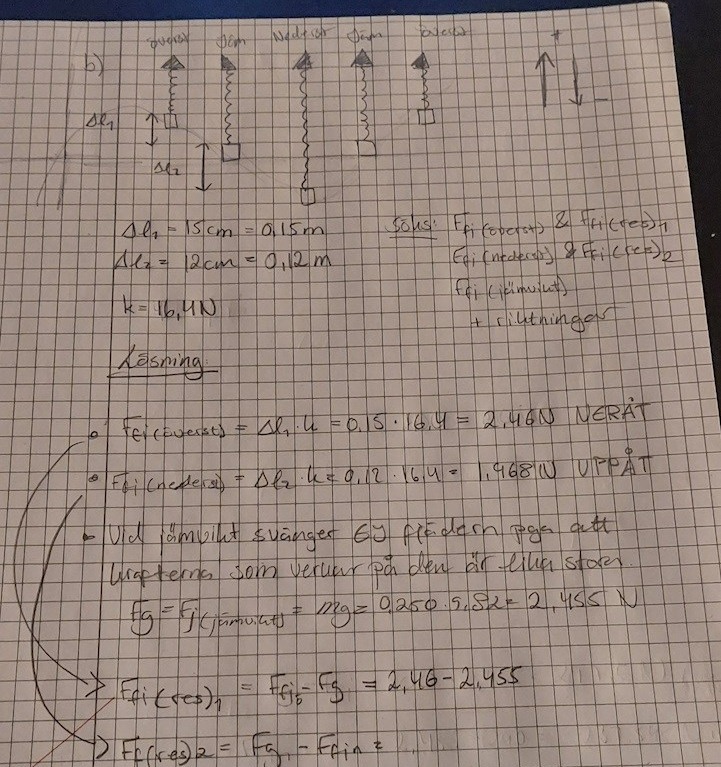 överst Jäm Nederst Jäm överst
b)
+
-
Δl₁
Δl₂
Δl₁ = 15cm = 0,15m
Δl₂ = 12cm = 0,12m
k = 16,4N
Söks: Ffj(överst) & Ffj(res)₁
Ffj(nederst) & Ffj(res)₂
Ffj(jämvikt)
+ riktningar
Lösning:
• Ffj(överst) = Δl₁·k = 0,15·16,4 = 2,46N NERÅT
• Ffj(nederst) = Δl₂·k = 0,12·16,4 = 1,968N UPPÅT
• Vid jämvikt svänger EJ fjädern pga att
krafterna som verkar på den är lika stora.
Fg = Fj(jämvikt) = mg = 0,250·9,82 = 2,455 N
Ffj(res)₁ = Ffjö - Fg = 2,46 - 2,455
Ff(res)2 = Fg - Ffjn =